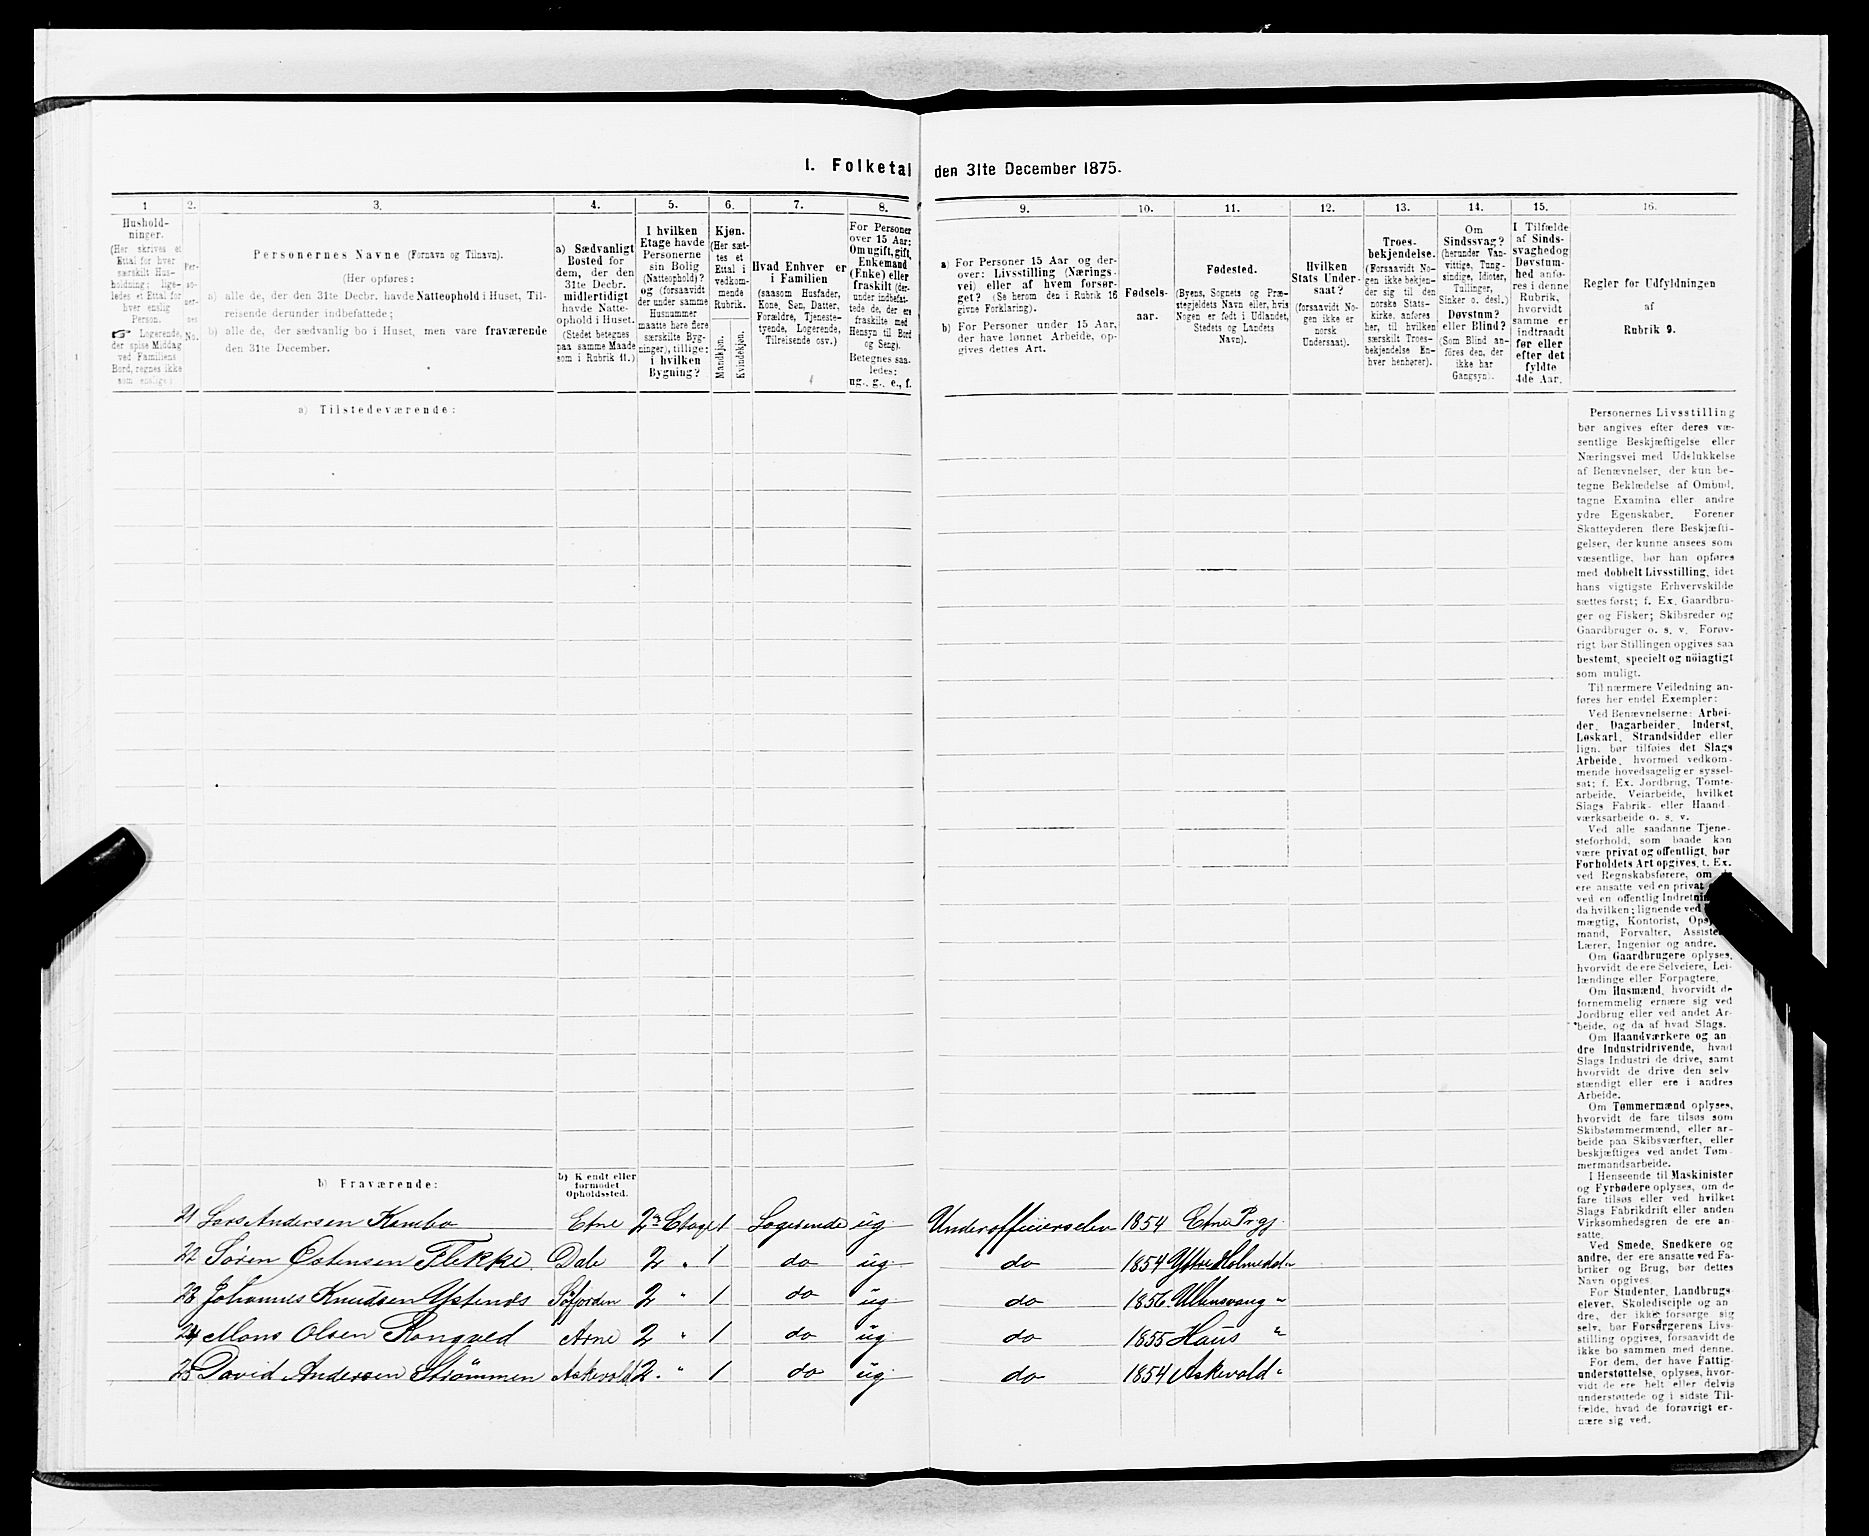 I. Folketal den 31te December 1875.
1 2. 3. 4. 5. 6. 7. 8. 9. 10. 11. 12. 13. 14. 15. 16.
Hushold-
ninger.
(Her skrives et
Ettal for hver
særskilt Hus-
holdning; lige-
ledes et Ettal for
hver enslig
Person.
☞ Logerende,
der spise Middag
ved Familiens
Bord, regnes ikke
som enslige.)
Per-
so-
ner-
nes
No.
Personernes Navne (Fornavn og Tilnavn).
(Her opføres:
a) alle de, der den 31te Decbr. havde Natteophold i Huset, Til-
reisende derunder indbefattede;
b) alle de, der sædvanlig bo i Huset, men vare fraværende
den 31te December.
a) Sædvanligt
Bosted for
dem, der den
31te Decbr.
midlertidigt
havde Natte-
ophold i Huset.
(Stedet betegnes
paa samme Maade
som i Rubrik 11.)
I hvilken
Etage havde
Personerne
sin Bolig
(Natteophold)?
og (forsaavidt
der under samme
Husnummer
maatte høre flere
særskilte Byg-
ninger), tillige:
i hvilken
Bygning?
Kjøn.
(Her sæt-
tes et
Ettal i
vedkom-
mende
Rubrik.
Mandkjøn.
Kvindekjøn.
Hvad Enhver er
i Familien
(saasom Husfader,
Kone, Søn, Datter,
Forældre, Tjeneste-
tyende, Logerende,
Tilreisende osv.)
For Personer
over 15 Aar:
Om ugift, gift,
Enkemand
(Enke) eller
fraskilt (der-
under indbefat-
tede de, der ere
fraskilte med
Hensyn til Bord
og Seng).
Betegnes saa-
ledes:
ug., g., e., f.
a) For Personer 15 Aar og der-
over: Livsstilling (Nærings-
vei) eller af hvem forsør-
get? (Se herom den i Rubrik 16
givne Forklaring).
b) For Personer under 15 Aar,
der have lønnet Arbeide, op-
gives dettes Art.
Fødsels-
aar.
Fødested.
(Byens, Sognets og Præ-
stegjeldets Navn eller, hvis
Nogen er født i Udlandet,
Stedets og Landets
Navn).
Hvilken
Stats Under-
saat?
(forsaavidt No-
gen ikke er
norsk
Undersaat).
Troes-
bekjendelse.
(Forsaavidt No-
gen ikke bekjen-
der sig til den
norske Stats-
kirke, anføres
her, til hvilken
særskilt Troes-
bekjendelse En-
hver henhører).
Om
Sindssvag?
(herunder Van-
vittige, Tung-
sindige, Idioter,
Tullinger,
Sinker o. desl.)
Døvstum?
eller Blind?
(Som Blind an-
føres den, der
ikke har
Gangsyn).
I Tilfælde
af Sinds-
svaghed og
Døvstum-
hed anfø-
res i denne
Rubrik,
hvorvidt
samme er
indtraadt
før eller
efter det
fyldte
4de Aar.
Regler for Udfyldningen
af
Rubrik 9.
a) Tilstedeværende:
Personernes Livsstilling
bør angives efter deres væ-
sentlige Beskjæftigelse eller
Næringsvei med Udelukkelse
af Benævnelser, der kun be-
tegne Beklædelse af Ombud,
tagne Examina eller andre
ydre Egenskaber. Forener
Skatteyderen flere Beskjæfti-
gelser, der kunne ansees som
væsentlige, bør han opføres
med dobbelt Livsstilling, idet
hans vigtigste Erhvervskilde
sættes først; f. Ex. Gaardbru-
ger og Fisker; Skibsreder og
Gaardbruger o. s. v. Forøv-
rigt bør Stillingen opgives saa
bestemt, specielt og nöiagtigt
som muligt.
Til nærmere Veiledning an-
føres her endel Exempler:
Ved Benævnelserne: Arbei-
der, Dagarbeider, Inderst,
Løskarl, Strandsidder eller
lign. bør tilføies det Slags
Arbeide, hvormed vedkom-
mende hovedsagelig er syssel-
sat; f. Ex. Jordbrug, Tomte-
arbeide, Veiarbeide, hvilket
Slags Fabrik- eller Haand-
værksarbeide o. s. v.
Ved alle saadanne Tjene-
steforhold, som baade kan
være privat og offentligt, bør
Forholdets Art opgives, f. Ex.
ved Regnskabsførere, om de
ere ansatte ved en privat
ved en offentlig
da hvilken; lignende ved
mægtig, Kontorist,
mand, Forvalter,
Lærer, Ingeniør og andre.
Om Gaardbrugere oplyses,
hvorvidt de ere Selveiere, Lei-
lændinge eller Forpagtere.
Om Husmænd, hvorvidt de
fornemmelig ernære sig ved
Jordbrug eller ved andet Ar-
beide, og da af hvad Slags.
Om Haandværkere og an-
dre Industridrivende, hvad
Slags Industri de drive, samt
hvorvidt de drive den selv-
stændigt eller ere i andres
Arbeide.
Om Tømmermænd oplyses,
hvorvidt de fare tilsøs som
Skibstømmermænd, eller ar-
beide paa Skibsværfter, eller
beskjæftiges ved andet Tøm-
mermandsarbeide.
I Henseende til Maskinister
og Fyrbødere oplyses, om de
fare tilsøs eller ved hvilket
Slags Fabrikdrift eller anden
Virksomhedsgren de ere an-
satte.
Ved Smede, Snedkere og
andre, der ere ansatte ved Fa-
briker og Brug, bør dettes
Navn opgives.
For Studenter, Landbrugs-
elever, Skoledisciple og an-
dre, der ikke forsørge sig
selv, bør Forsørgerens Livs-
stilling opgives, forsaavidt de
ikke bo sammen med denne.
For dem, der have Fattig-
understøttelse, oplyses, hvor-
vidt de ere helt eller delvis
understøttede og i sidste Til-
fælde, hvad de forøvrigt er-
nære sig ved.
b) Fraværende: b) Kjendt eller
formodet
Opholdssted.
21 Lars Andersen Kambo Etne 2den Etage 1 Logerende ug Underofficierselev 1854 Etne Prgj.
22 Sören Östensen Flekke Dale 2 " 1 do ug do 1854 Yttre Holmedal "
23 Johannes Knudsen Ystenæs Söfjorden 2 " 1 do ug do 1856 Ullensvang "
24 Mons Olsen Rongved Arne 2 " 1 do ug do 1855 Haus "
25 David Andersen Strömmen Askevold 2 " 1 do ug do 1854 Askevold "